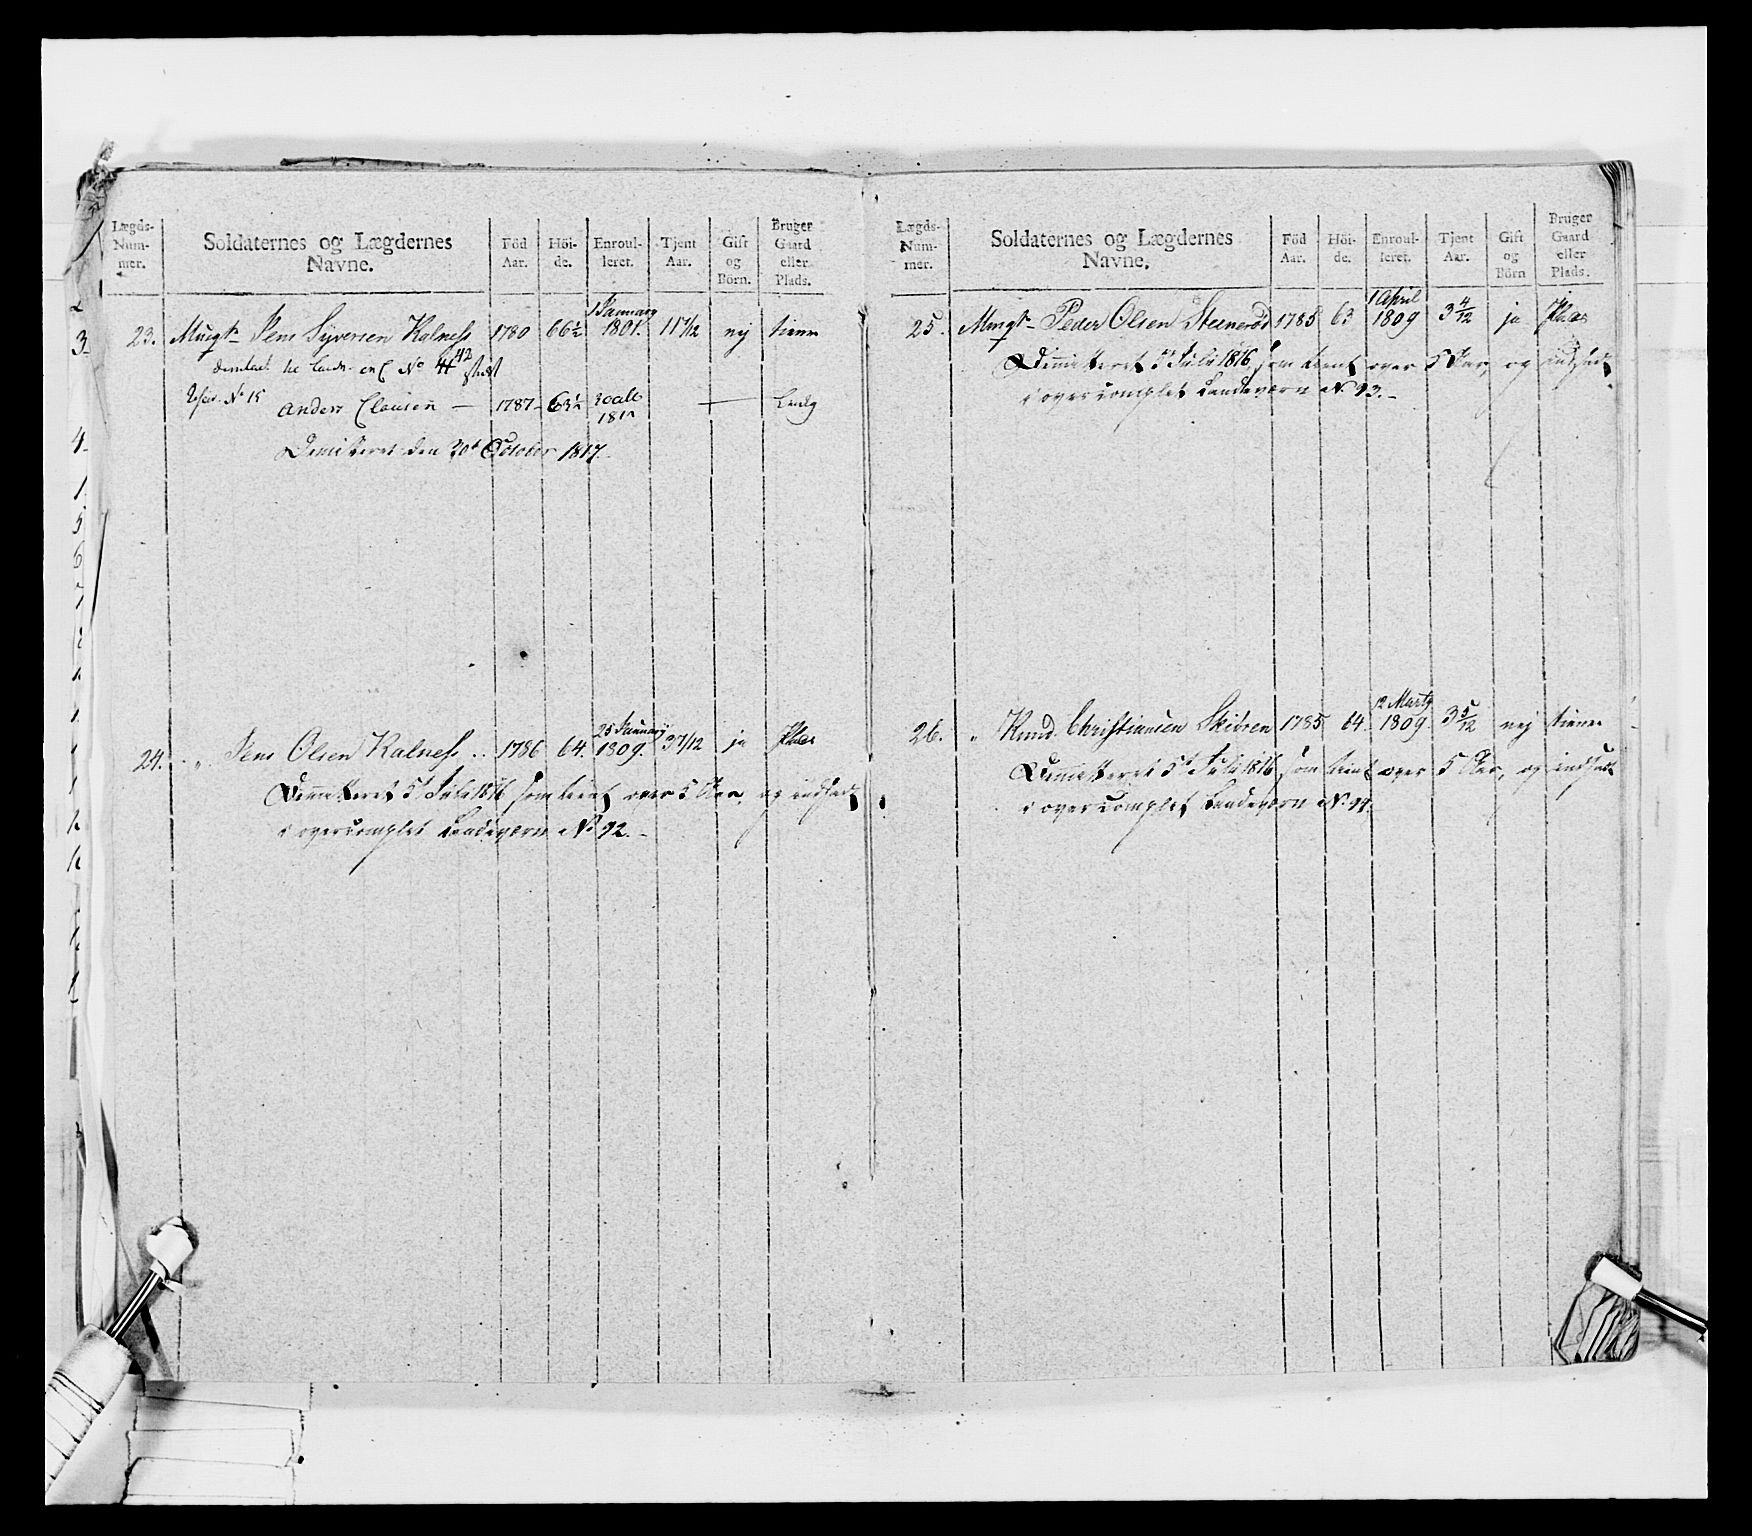 Lægds-Num-mer.
Soldaternes og Lægdernes Navne.
Föd Aar.
Höi-de.
Enroul-leret.
Tjent Aar.
Gift og Börn.
Bruger Gaard eller Plads.
23. Musqt Jens Syversen Kalness 1780 66½ 1 Januarÿ 1801. 11 7/12 nej tiener
No 44 42
No 15 Anders Clausen — 1787 63½ —
Dimitteret den 20de October 1817.
24. " Jens Olsen Kalness 1786 64. 25 Januarÿ 1809. 3 7/12 ja Plads
Dimitteret 5t Juli 1816 som tient over 5 Aar, og indsadt
i overcomplet Landeværn No 92.
Lægds-Num-mer.
Soldaternes og Lægdernes Navne.
Föd Aar.
Höi-de.
Enroul-leret.
Tjent Aar.
Gift og Börn
Bruger Gaard eller Plads.
25. Musqt Peder Olsen Steenerød 1785 63 1 April 1809 3 4/12 ja Plads
Dimitteret 5t Juli 1816, som tient over 5 Aar, og indsadt
i overcomplet Landeværn No 93.
26. " Knud Christiansen Skibren 1785 64 12 Marty 1809 3 5/12 nej tiener
Dimitteret 5t Juli 1816 som tient over 5 Aar, og indsadt
i overcomplet Landeværn No 94.